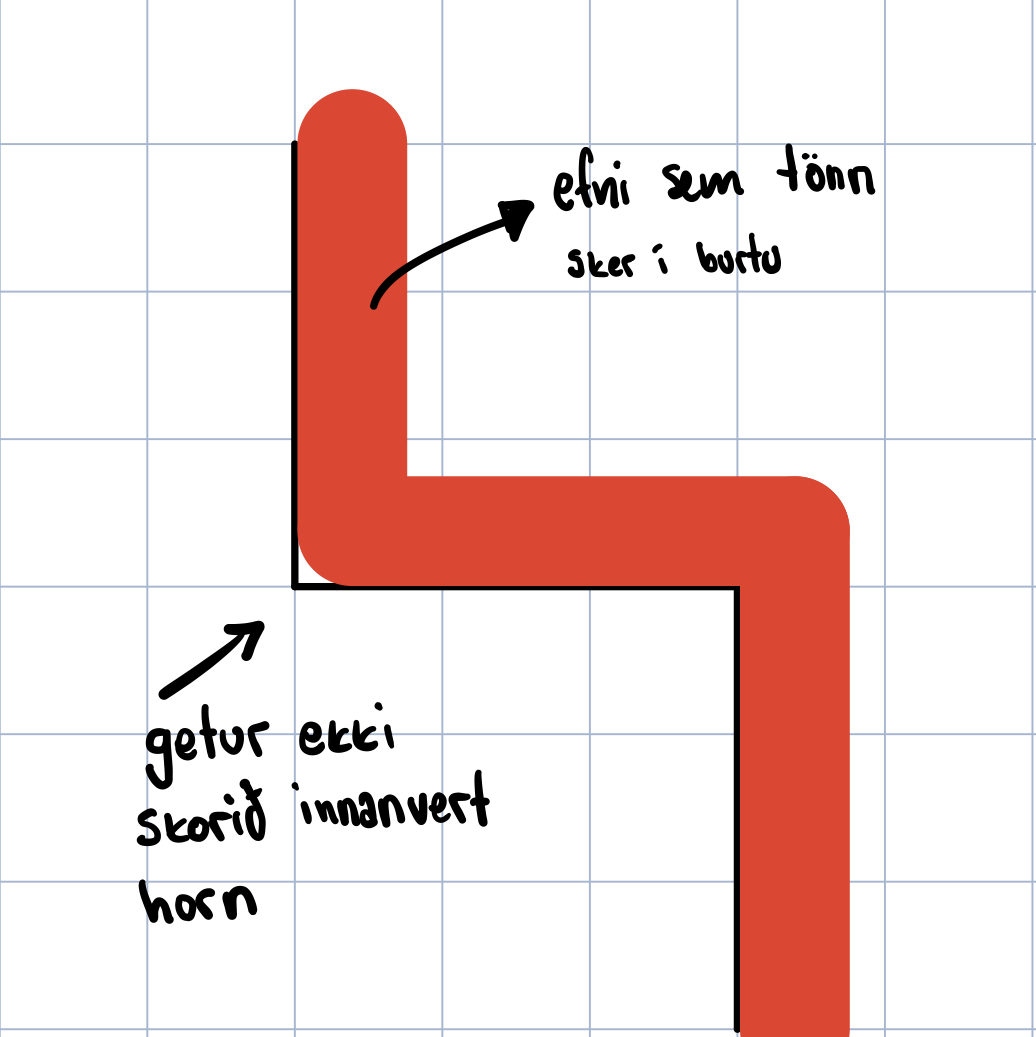 efni sem tönn
sker í burtu
getur ekki
skorið innanvert
horn